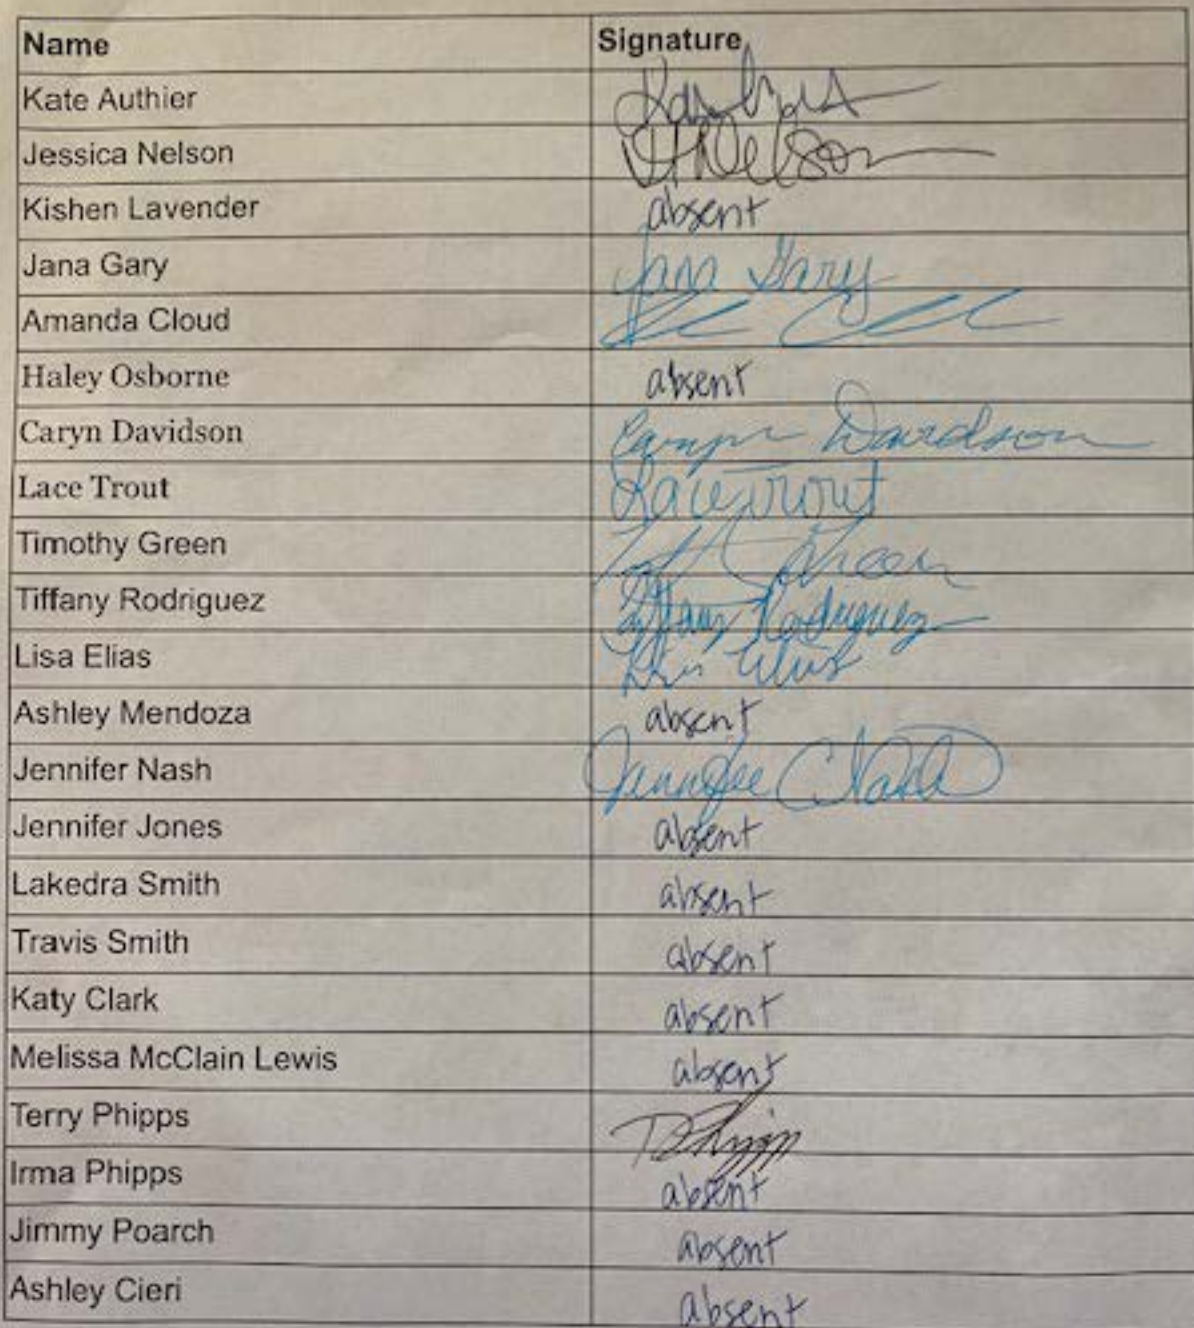 Name Signature
Kate Authier
Jessica Nelson Nelson
Kishen Lavender absent
Jana Gary Jana Gary
Amanda Cloud
Haley Osborne absent
Caryn Davidson Caryn Davidson
Lace Trout Lace Trout
Timothy Green Green
Tiffany Rodriguez Tiffany Rodriguez
Lisa Elias Lisa Elias
Ashley Mendoza absent
Jennifer Nash Jennifer C Nash
Jennifer Jones absent
Lakedra Smith absent
Travis Smith absent
Katy Clark absent
Melissa McClain Lewis absent
Terry Phipps
Irma Phipps absent
Jimmy Poarch absent
Ashley Cieri absent